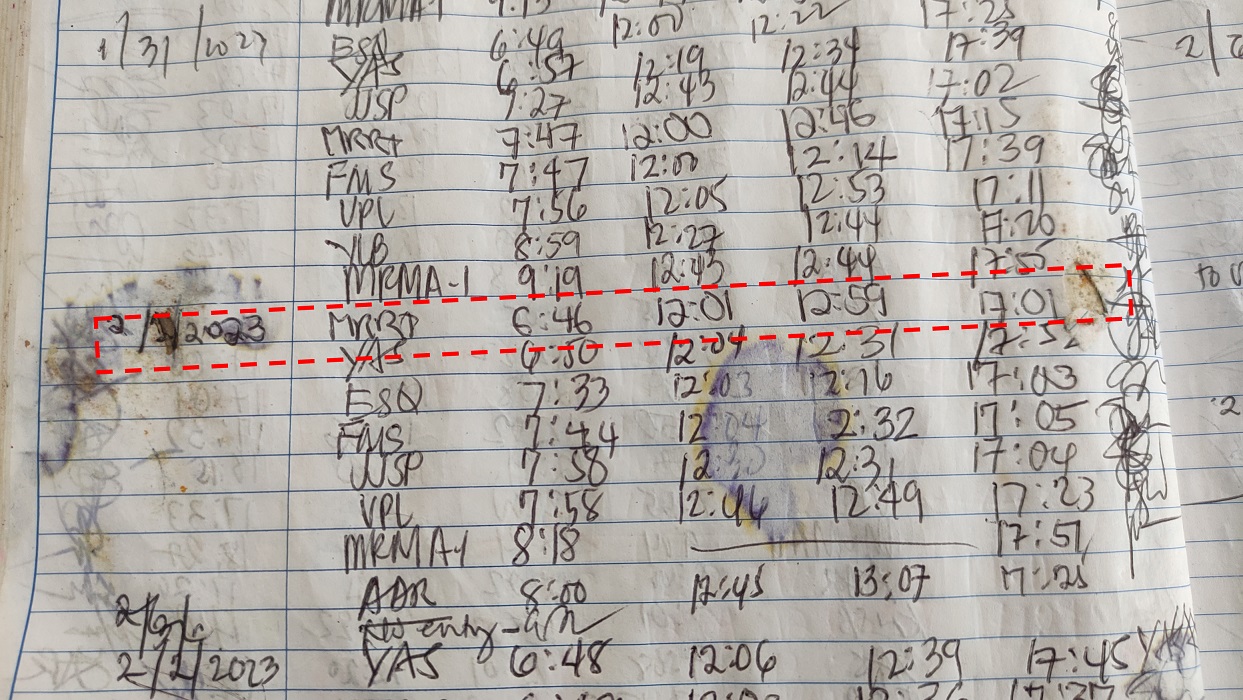 MRMA-1 12:00 12:22 17:25
1/31/2023 ESQ 6:49 12:19 12:34 17:39
YAS 6:57 12:43 12:44 17:02
WSP 7:27 12:00 12:46 17:15
MRRT 7:47 12:00 12:14 17:39
FMS 7:47 12:05 12:53 17:11
VPL 7:56 12:27 12:44 17:20
YLB 8:59 12:43 12:44 17:55
MRMA-1 9:19
2/1/2023 MRRT 6:46 12:01 12:59 17:01
YAS 6:50 12:04 12:31 17:52
ESQ 7:33 12:03 12:16 17:03
FMS 7:44 12:04 2:32 17:05
WSP 7:58 12: 12:31 17:04
VPL 7:58 12:46 12:49 17:23
MRMA-1 8:18 17:51
ADR 8:00 12:45 13:07 17:25
No entry
2/2/2023 YAS 6:48 12:06 12:39 17:45 YAS